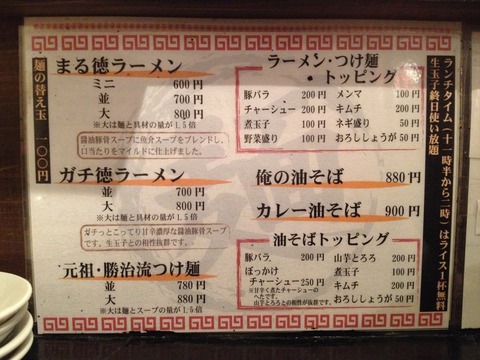 麺の替え玉 一〇〇円
まる徳ラーメン
ミニ 600円
並 700円
大 800円
※大は麺と具材の量が1.5倍
醤油豚骨スープに魚介スープをブレンドし、
口当たりをマイルドに仕上げました。
ガチ徳ラーメン
並 700円
大 800円
※大は麺と具材の量が1.5倍
ガチっとこってり甘辛濃厚な醤油豚骨スープ
です。生玉子との相性抜群です。
元祖・勝治流つけ麺
並 780円
大 880円
※大は麺とスープの量が1.5倍
ラーメン・つけ麺
・トッピング
豚バラ 200円 メンマ 100円
チャーシュー 200円 キムチ 200円
煮玉子 100円 ネギ盛り 100円
野菜盛り 100円 おろししょうが 50円
俺の油そば 880円
カレー油そば 900円
油そばトッピング
豚バラ 200円 山芋とろろ 200円
ぼっかけ 200円 煮玉子 100円
チャーシュー 250円 キムチ 200円
※甘辛く煮たチャーシューの
へたです。
山芋とろろとの相性が抜群です。
おろししょうが 50円
ランチタイム(十一時半から二時)はライス1杯無料
生玉子終日使い放題